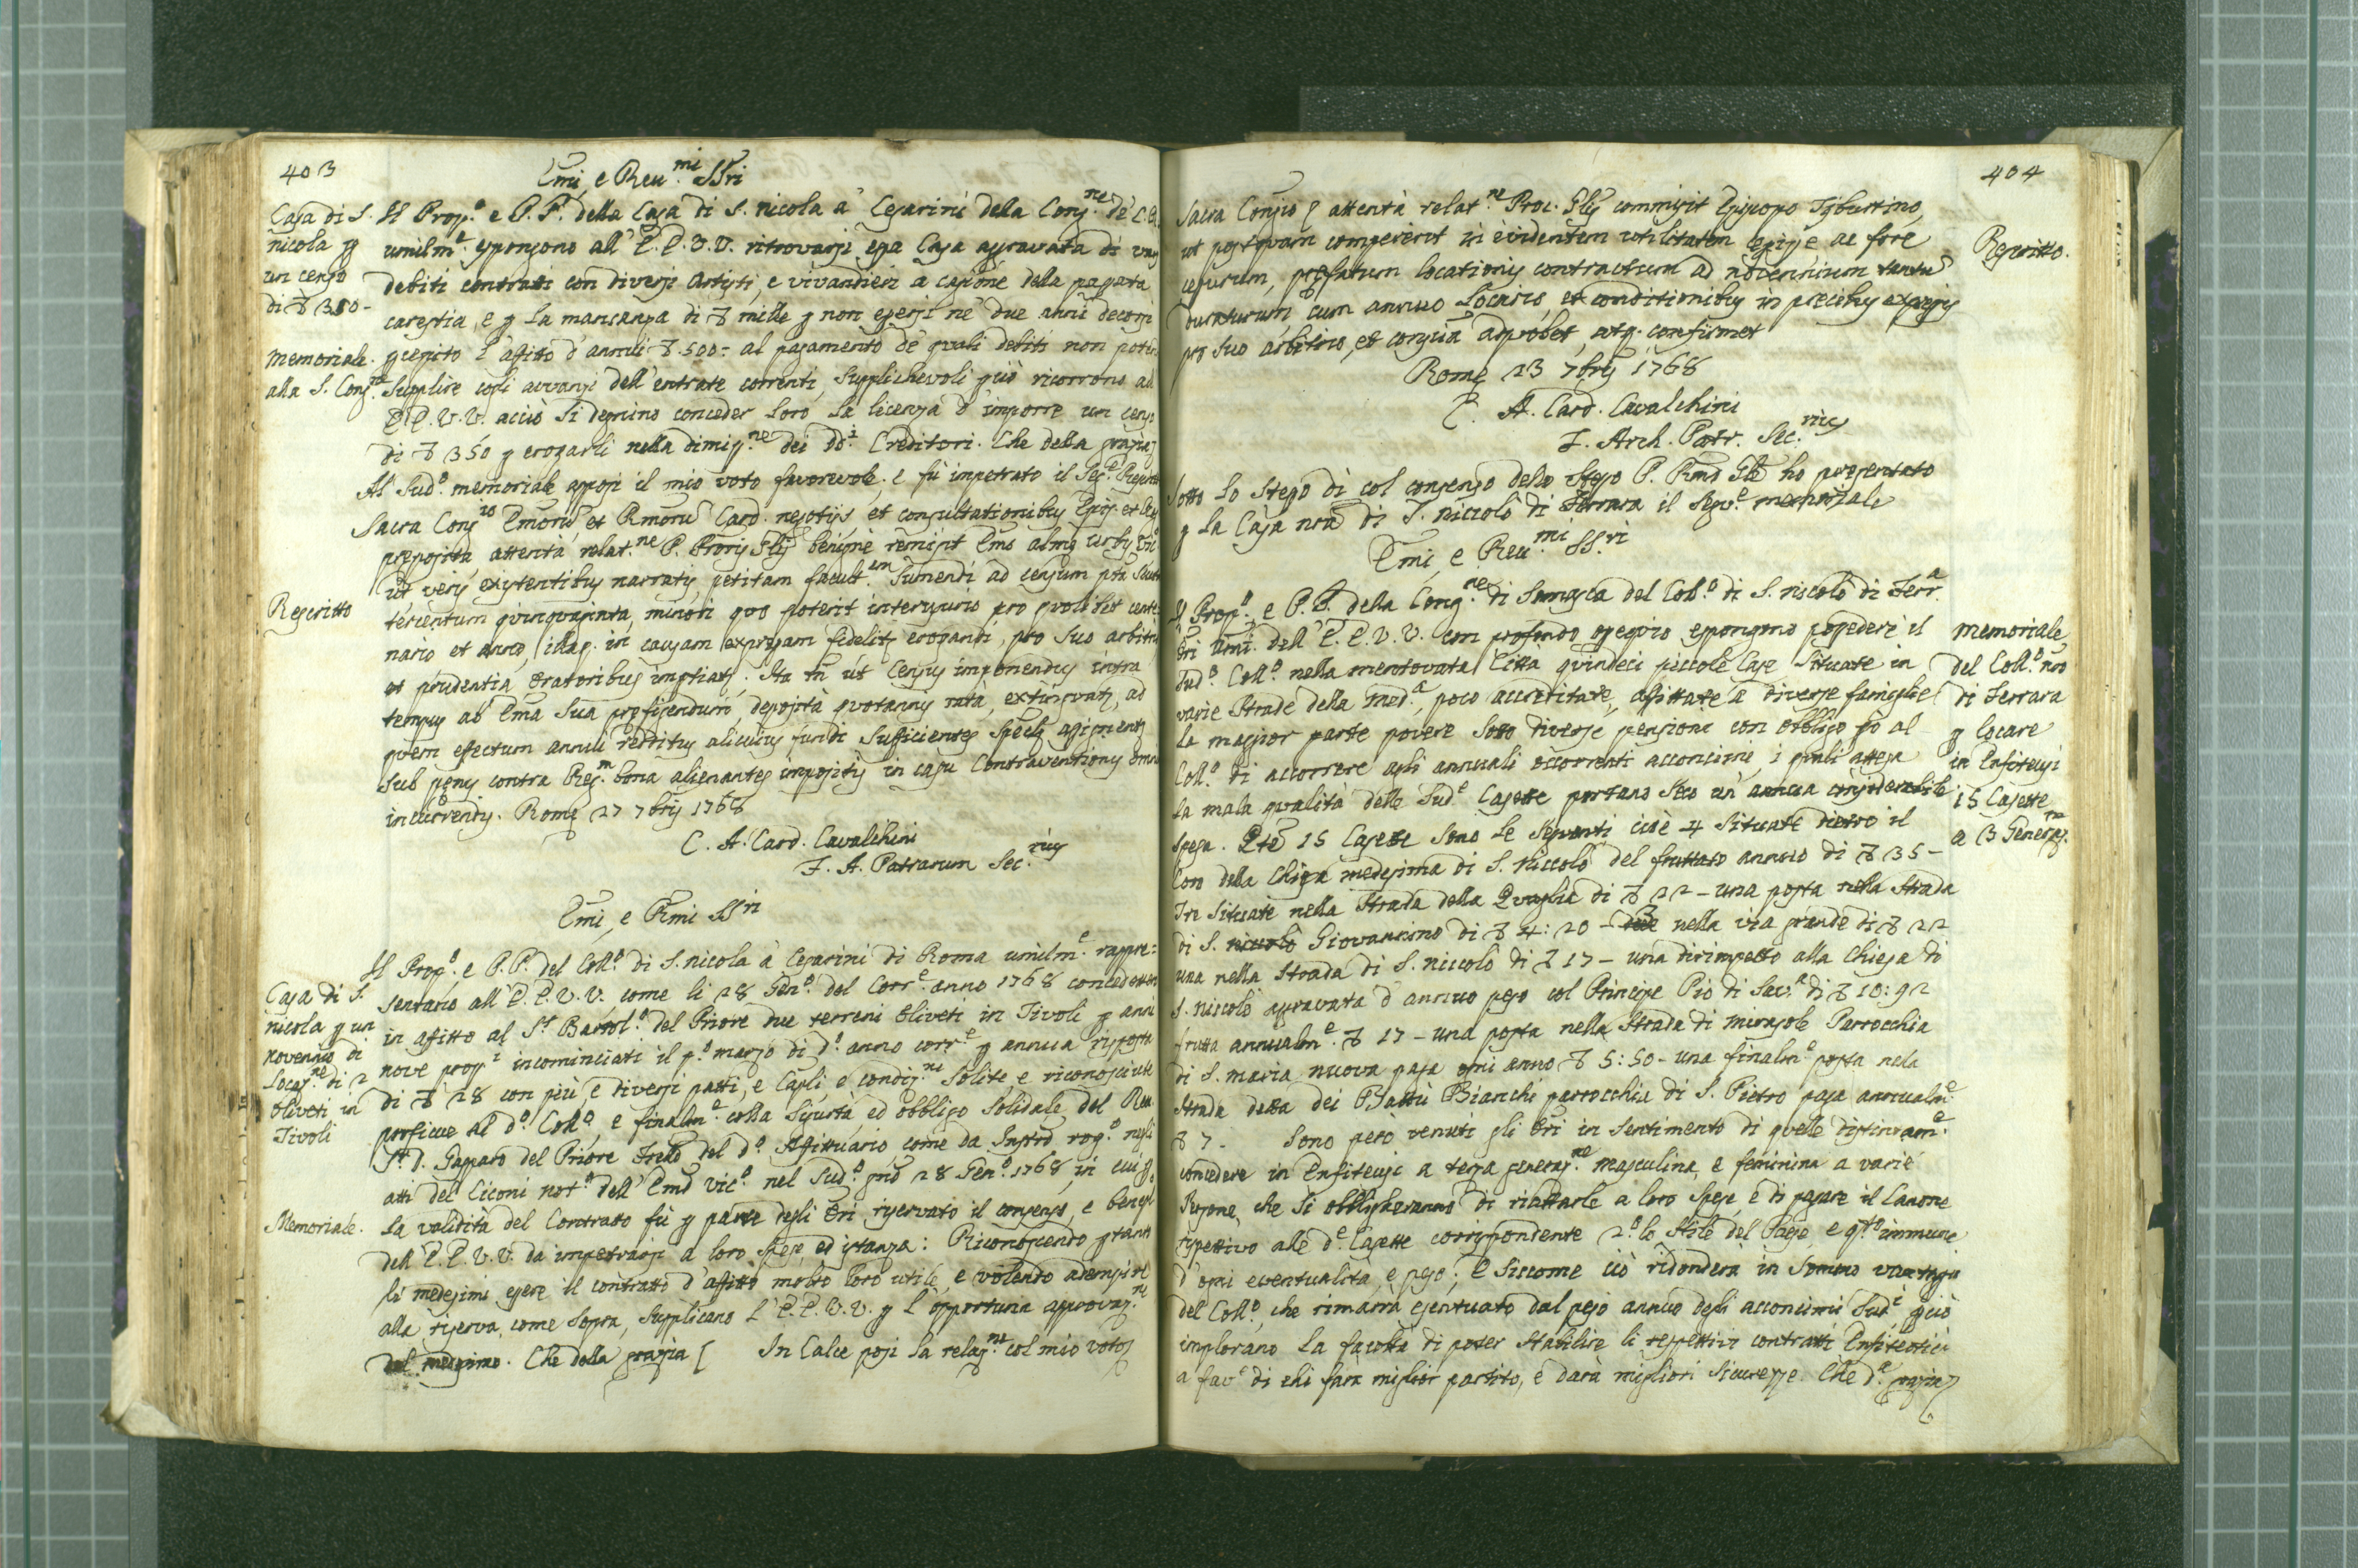 403
Emi, e Reu.mi SSri
Casa di S.
nicola p
un censo
di ∇ 350-
Memoriale.
alla S. Cong.ne
Il Prop.o e P. P. della Casa di S. nicola a' Cesarini della Cong.ne de' C. R.
umilm.e espongono all' E.E. V.V. ritrovarsi essa Casa agravata di varj
debiti contratti con diversi Artisti, e vivandieri a cagione della passata
carestia, e p la mancanza di ∇ mille p non essersi ne' due anni decorsi
pcepito l'affitto d'annui ∇ 500- al pagamento de' quali debiti non poten
supplire cogli avvanzi dell'entrate correnti, supplichevoli pciò ricorrono ad
E.E. V.V. acciò si degnino conceder loro la licenza d'imporre un censo
di ∇ 350 p erogarli nella dimiss.ne dei dd.i Creditori. Che della grazia
Al sud.o memoriale apposi il mio voto favorevole, e fù impetrato il Seg.e Rescritto
Rescritto
Sacra Cong.io Emoru et Rmoru Card. negotijs, et consultationibus Epis. et Reg.
preposita, attenta relat.ne P. Proris Glis benigne remisit Emo almę Urbis Vic.
ut veris existentibus narratis, petitam facult.em sumendi ad censum pta scuta
tercentum quinquaginta, minori quo poterit interusurio, pro quolibet cente
nario et anno, illaq. in causam expressam fideliter erogandi, pro suo arbitrio
et prudentia, Oratoribus imptiat. Ita tn ut Census imponendus intra
tempus ab Ema Sua prefigendum, deposita quotannis rata, extinguat, ad
quem effectum annui redditus alicuius fundi sufficientes specif. assignent
sub pęnis contra Reg.m bona alienantes impositis in casu Contraventionis omn
incurrendis. Romę 27 7bris 1768
C. A. Card. Cavalchini
F. A. Patrarum Sec.rius
Emi, e Rmi SSri
Casa di S.
nicola p un
novennio di
locaz.ne di 2
Oliveti in
Tivoli
Memoriale.
Il Prop.o e P.P. del Coll.o di S. nicola a' Cesarini di Roma umilm.e rappre=
sentano all' E.E. V.V. come li 28 Gen.o del Corr.e anno 1768 concedettero
in affitto al S.r Bartol.o del Priore due terreni Oliveti in Tivoli p anni
nove pross.i incominciati il p.o marzo di d.o anno corr.e p annua risposta
di ∇ 28 con più, e diversi patti, e Capli, e condiz.ni solite, e riconosciute
proficue al d.o Coll.o e finalm.e colla sigurtà, ed obbligo solidale del Reu.
S.r D. Gasparo del Priore frello del d.o Affittuario, come da Instro rog.o negli
atti del Ciconi not.o dell'Emo Vic.o nel sud.o gno 28 Gen.o 1768, in cui p
la validità del Contratto fù p parte degli Ori riservato il consenso, e benepl
dell' E.E. V.V. da impetrarsi a loro spese, ed istanza: Riconoscendo ptanto
li medesimi essere il contratto d'affitto molto loro utile, e volendo adempire
alla riserva, come sopra, supplicano l' E.E. V.V. p l'opportuna approvaz.ne
del medesimo. Che della grazia [ In Calce posi la relaz.ne col mio voto
404
Rescritto.
Sacra Congio attenta relat.ne Proc. Glis commisit Episcopo Tyburtino,
ut postquam compererit in evidentem utilitatem cessisse ac fore
cessurum, pręfatum locationis contractum ad novennium tantu
duraturum, cum annuo Locario, et conditionibus in precibus expressis
pro suo arbitrio, et conscia approbet, atq. confirmet
Romę 23 7bris 1768
C. A. Card. Cavalchini
F. Arch. Patr. Sec.rius
Sotto lo stesso dì col consenso dello stesso P. Rmo Gle ho presentato
p la Casa nra di S. niccolò di Ferrara il seg.e memoriale
Emi, e Reu.mi SS.ri
Memoriale
del Coll.o nro
di Ferrara
p locare
in Enfiteusi
15 Casette
a 3 Generaz.ni
Il Prop.o, e P.P. della Cong.ne di Somasca del Coll.o di S. niccolò di Ferr.a
Ori Umi. dell' E.E. V.V. con profondo ossequio espongono possedere il
sud.o Coll.o nella mentovata Città quindeci piccole Case situate in
varie Strade della med.a, poco accreditate, affittate a diverse famiglie
la maggior parte povere sotto diverse pensioni con obbligo pò al
Coll.o di accorrere agli annuali occorrenti acconcimi, i quali attesa
la mala qualità delle sud.e Casette portano seco un' annua considerabile
spesa. Dte 15 Casette sono le seguenti, cioè 4 situate dietro il
Coro della Chiesa medesima di S. niccolò del fruttato annuo di ∇ 35-
Tre situate nella Strada della Quaglia di ∇ 22 - una posta nella Strada
di S. niccolò Giovannino di ∇ 4:20 - 3 nella via grande di ∇ 22
una nella Strada di S. niccolò di ∇ 17 - una dirimpetto alla Chiesa di
S. niccolò agravata d'annuo peso col Principe Pio di Sav.a di ∇ 10:92
frutta annualm.e ∇ 17 - una posta nella Strada di Mirasole Parrocchia
di S. maria nuova paga ogni anno ∇ 5:50 - una finalm.e posta nella
Strada detta dei Battù Bianchi parrocchia di S. Pietro paga annualm.e
∇ 7 - Sono però venuti gli Ori in sentimento di quelle distintam.e
concedere in Enfiteusi a terza generaz.ne masculina, e feminina a varie
Persone, che si obbligheranno di riattarle a loro spese, e di pagare il Canone
rispettivo alle d.e Casette corrispondente 2.o lo stile del Paese e q.to immune
d'ogni eventualità, e peso; E siccome ciò ridonderà in sommo vantaggio
del Coll.o, che rimarrà esentuato dal peso annuo degli acconcimi sud.i pciò
implorano la facoltà di poter stabilire li respettivi contratti Enfiteotici
a fav.e di chi farà miglior partito, e darà migliori sicurezze. Che d.a grazia